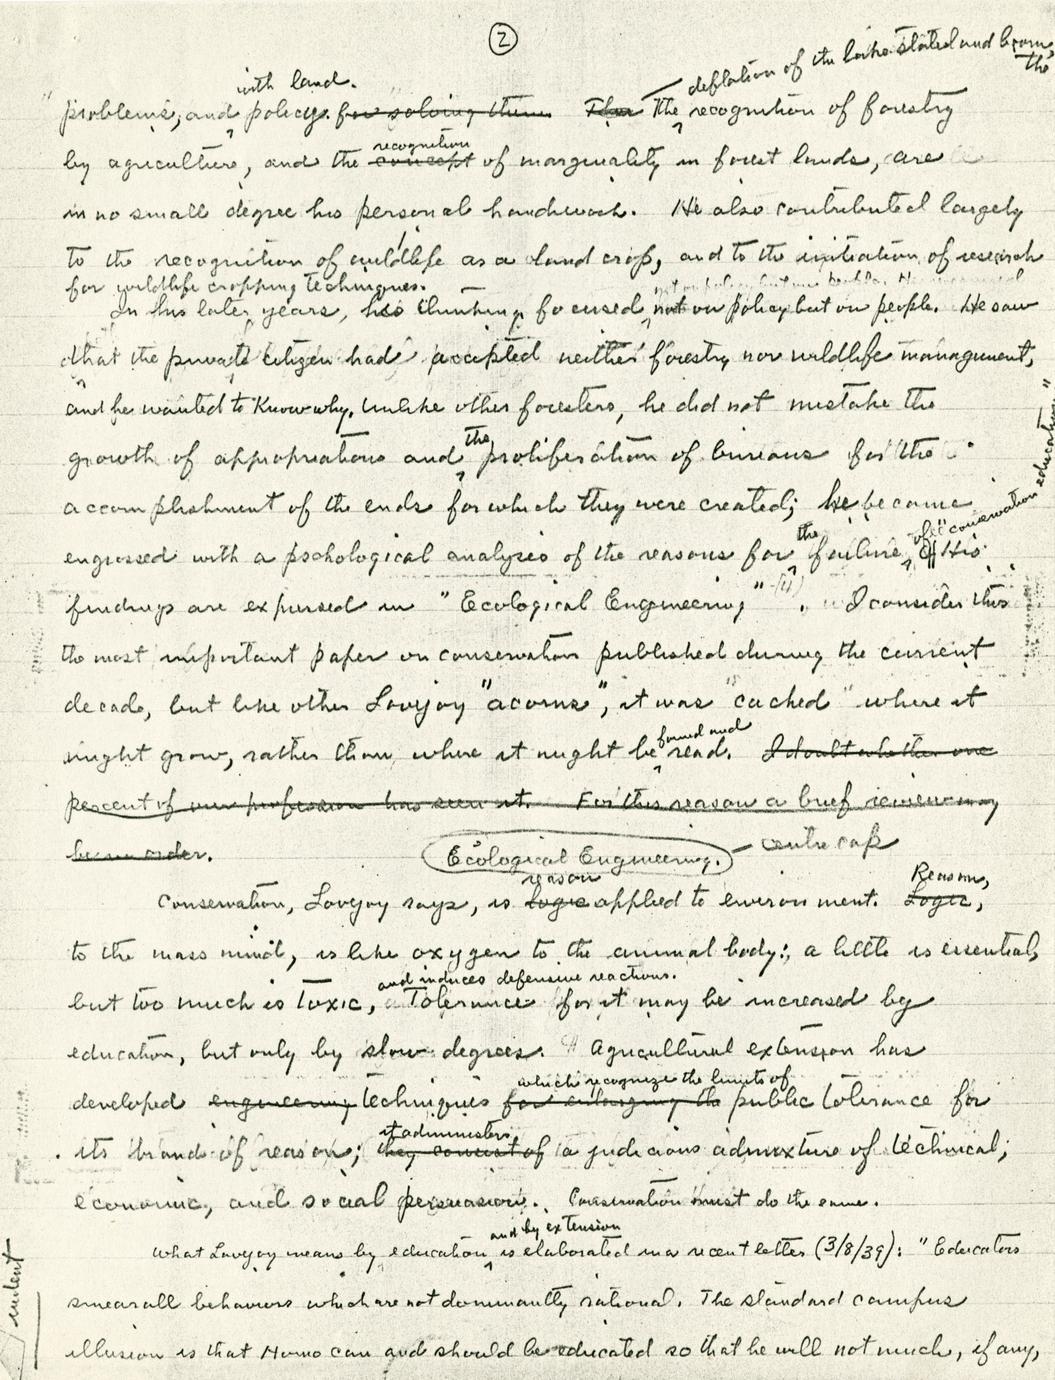 2
deflation of the lake states and boom, the
with land.
problems, and policy. for solving them The recognition of forestry
by agriculture, and the concept recognition of marginality in forest lands, are
in no small degree his personal handiwork. He also contributed largely
to the recognition of wildlife as a land crop, and to the initiation of research
for wildlife cropping techniques.
In his later years, his thinking focused not on policy but on people. He saw
that the private citizen had accepted neither forestry nor wildlife management,
and he wanted to know why. Unlike other foresters, he did not mistake the
growth of appropriations and the proliferation of bureaus for the
accomplishment of the ends for which they were created; he became
engrossed with a pschological analysis of the reasons for the failure of "conservation education." His
findings are expressed in "Ecological Engineering" (4). I consider this
the most important paper on conservation published during the current
decade, but like other Lovejoy "acorns", it was "cached" where it
might grow, rather than where it might be found and read. I doubt whether one
percent of our profession has seen it. For this reason a brief review may
be in order.
Ecological Engineering. – centre caps
Conservation, Lovejoy says, is logic reason applied to environment. Logic, Reason,
to the mass mind, is like oxygen to the animal body: a little is essential,
but too much is toxic, and induces defensive reactions. Tolerance for it may be increased by
education, but only by slow degrees. ¶ Agricultural extension has
developed engineering techniques for enlarging the which recognize the limits of public tolerance for
its brand of reason; they consist of it administers a judicious admixture of technical,
economic, and social persuasion. Conservation must do the same.
What Lovejoy means by education and by extension is elaborated in a recent letter (3/8/39): "Educators
smear all behaviors which are not dominantly rational. The standard campus
illusion is that Homo can and should be educated so that he will not much, if any,
indent